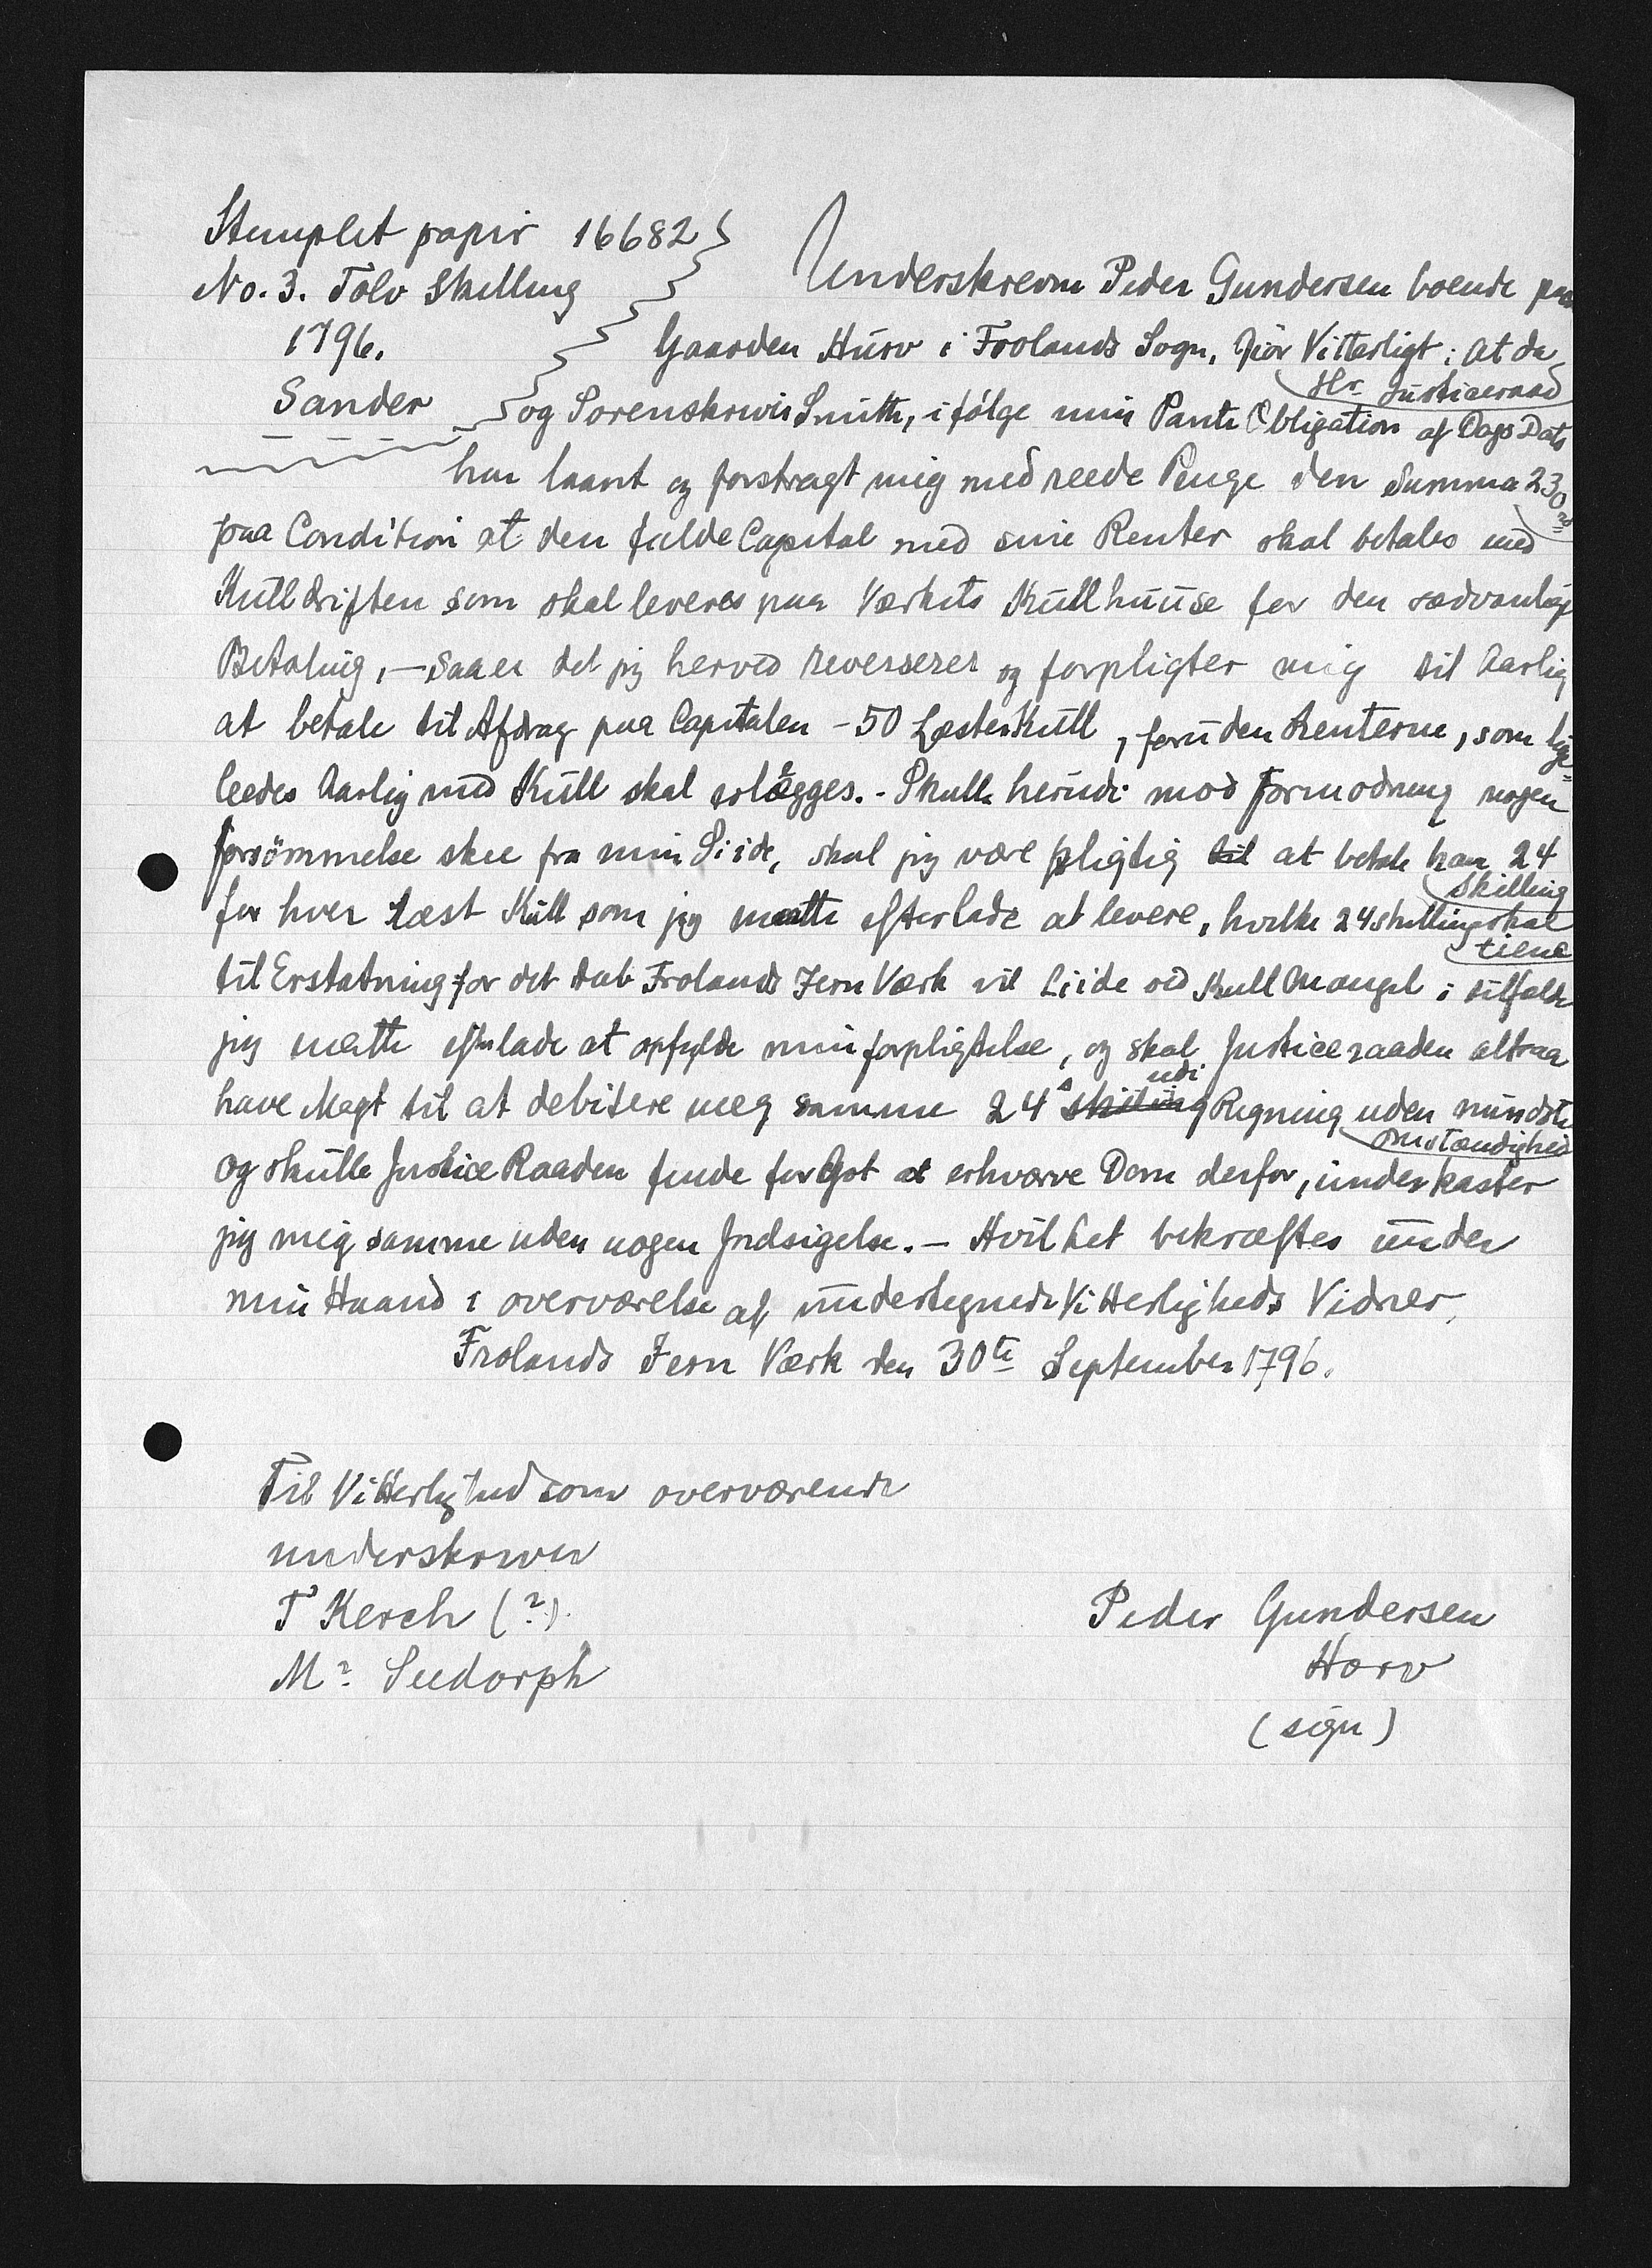 Stemplet papir 16682
No. 3. Tolv Skilling
1796.
Sander
Underskrevne Peder Gundersen boende paa
Gaarden Hurv i Frolands Sogn, Giør Vitterligt: at da
Hr. Justiceraad
og Sorenskriver Smith, ifølge min Pante Obligation af Dags Dato
har laant og forstragt mig med reede Penge den Summa 230 rd
paa Condition at den fulde Capital med sine Renter skal betales med
Kulldriften som skal leveres paa Værkets Kullhuuse for den sædvanlige
Betaling, – saa er det jeg herved reverserer og forpligter mig til Aarlig
at betale til Afdrag paa Capitalen – 50 Læster Kull, foruden Renterne, som lige=
leedes Aarlig med Kull skal erlægges. – Skulle herudi mod formodning nogen
forsømmelse skee fra min Siide, skal jeg være pligtig til at betale ham 24
skilling
for hver Læst Kull som jeg maatte efterlade at levere, hvilke 24 skilling skal
tiene
til Erstatning for det tab Frolands Jern Værk vil Liide ved Kull Mangel i tilfælde
jeg maatte efterlade at opfylde min forpligtelse, og skal Justiceraaden altsaa
have Magt til at debitere meg samme 24 s skilling udi Regning uden mindste
omstændighed
og skulle Justice Raaden finde for Got at erhværve Dom derfor, underkaster
jeg mig samme uden nogen Indsigelse. – Hvilket bekræftes under
min Haand i overværelse af undertegnede Vitterligheds Vidner,
Frolands Jern Værk den 30te September 1796.
Til Vitterlighed som overværende
underskriver
T Kerch (?)
M? Seedorph
Peder Gundersen
Horv
(sign)